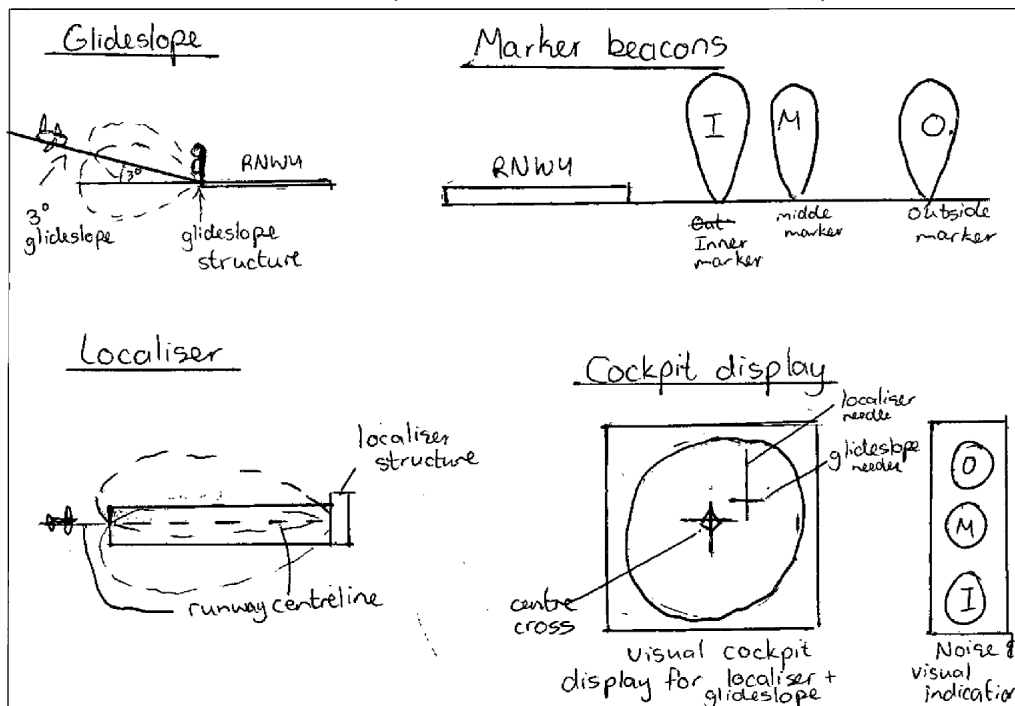 Glideslope
3°
RNWY
3°
glideslope
glideslope
structure
Marker beacons
I
M
O
RNWY
Out
Inner
marker
middle
marker
outside
marker
Localiser
localiser
structure
runway centreline
Cockpit display
localiser
needle
glideslope
needle
centre
cross
visual cockpit
display for localiser +
glideslope
O
M
I
Noise &
visual
indication